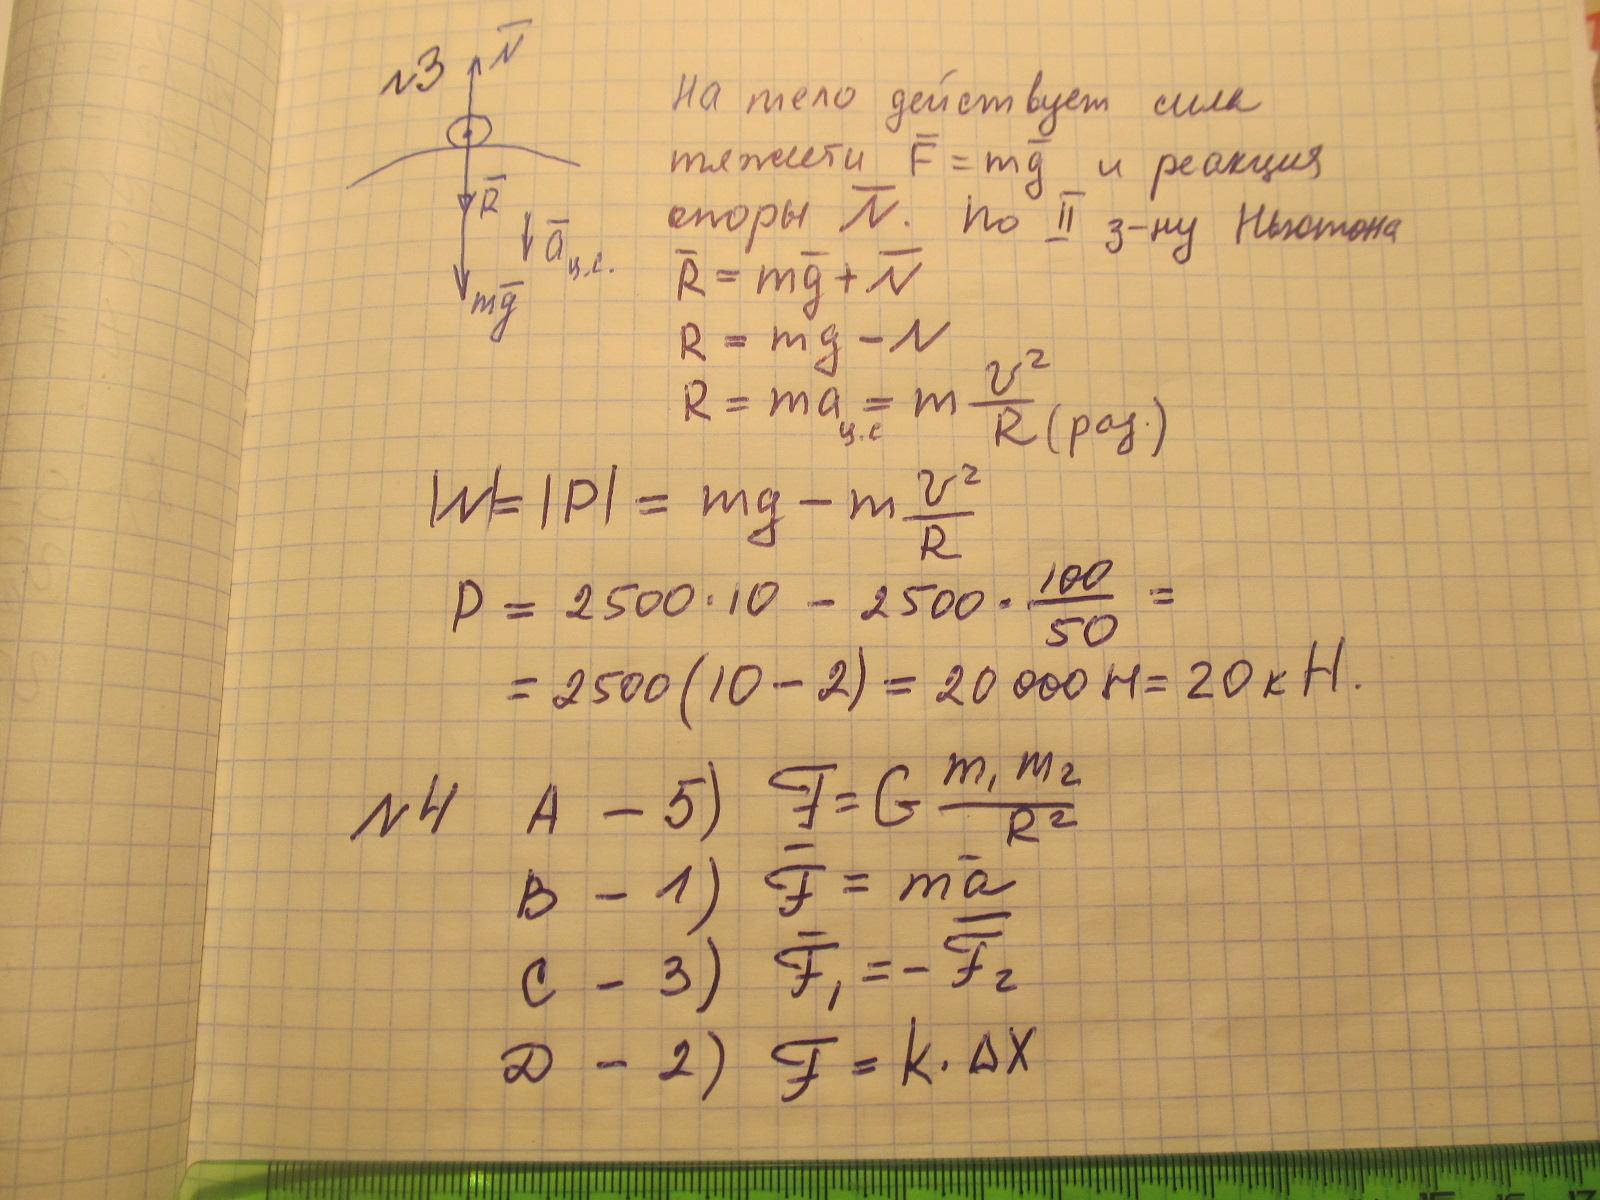 №3
N̅
R̅
a̅ц.с.
mg̅
На тело действует сила
тяжести F̅ = mg̅ и реакция
опоры N̅. По II з-ну Ньютона
R̅ = mg̅ + N̅
R = mg - N
R = maц.с = m v²/R (рад.)
|N| = |P| = mg - m v²/R
P = 2500·10 - 2500·100/50 =
= 2500(10-2) = 20 000 Н = 20 кН.
№4 A - 5) F = G m₁m₂/R²
B - 1) F̅ = ma̅
C - 3) F̅₁ = - F̅₂
D - 2) F = k·ΔX